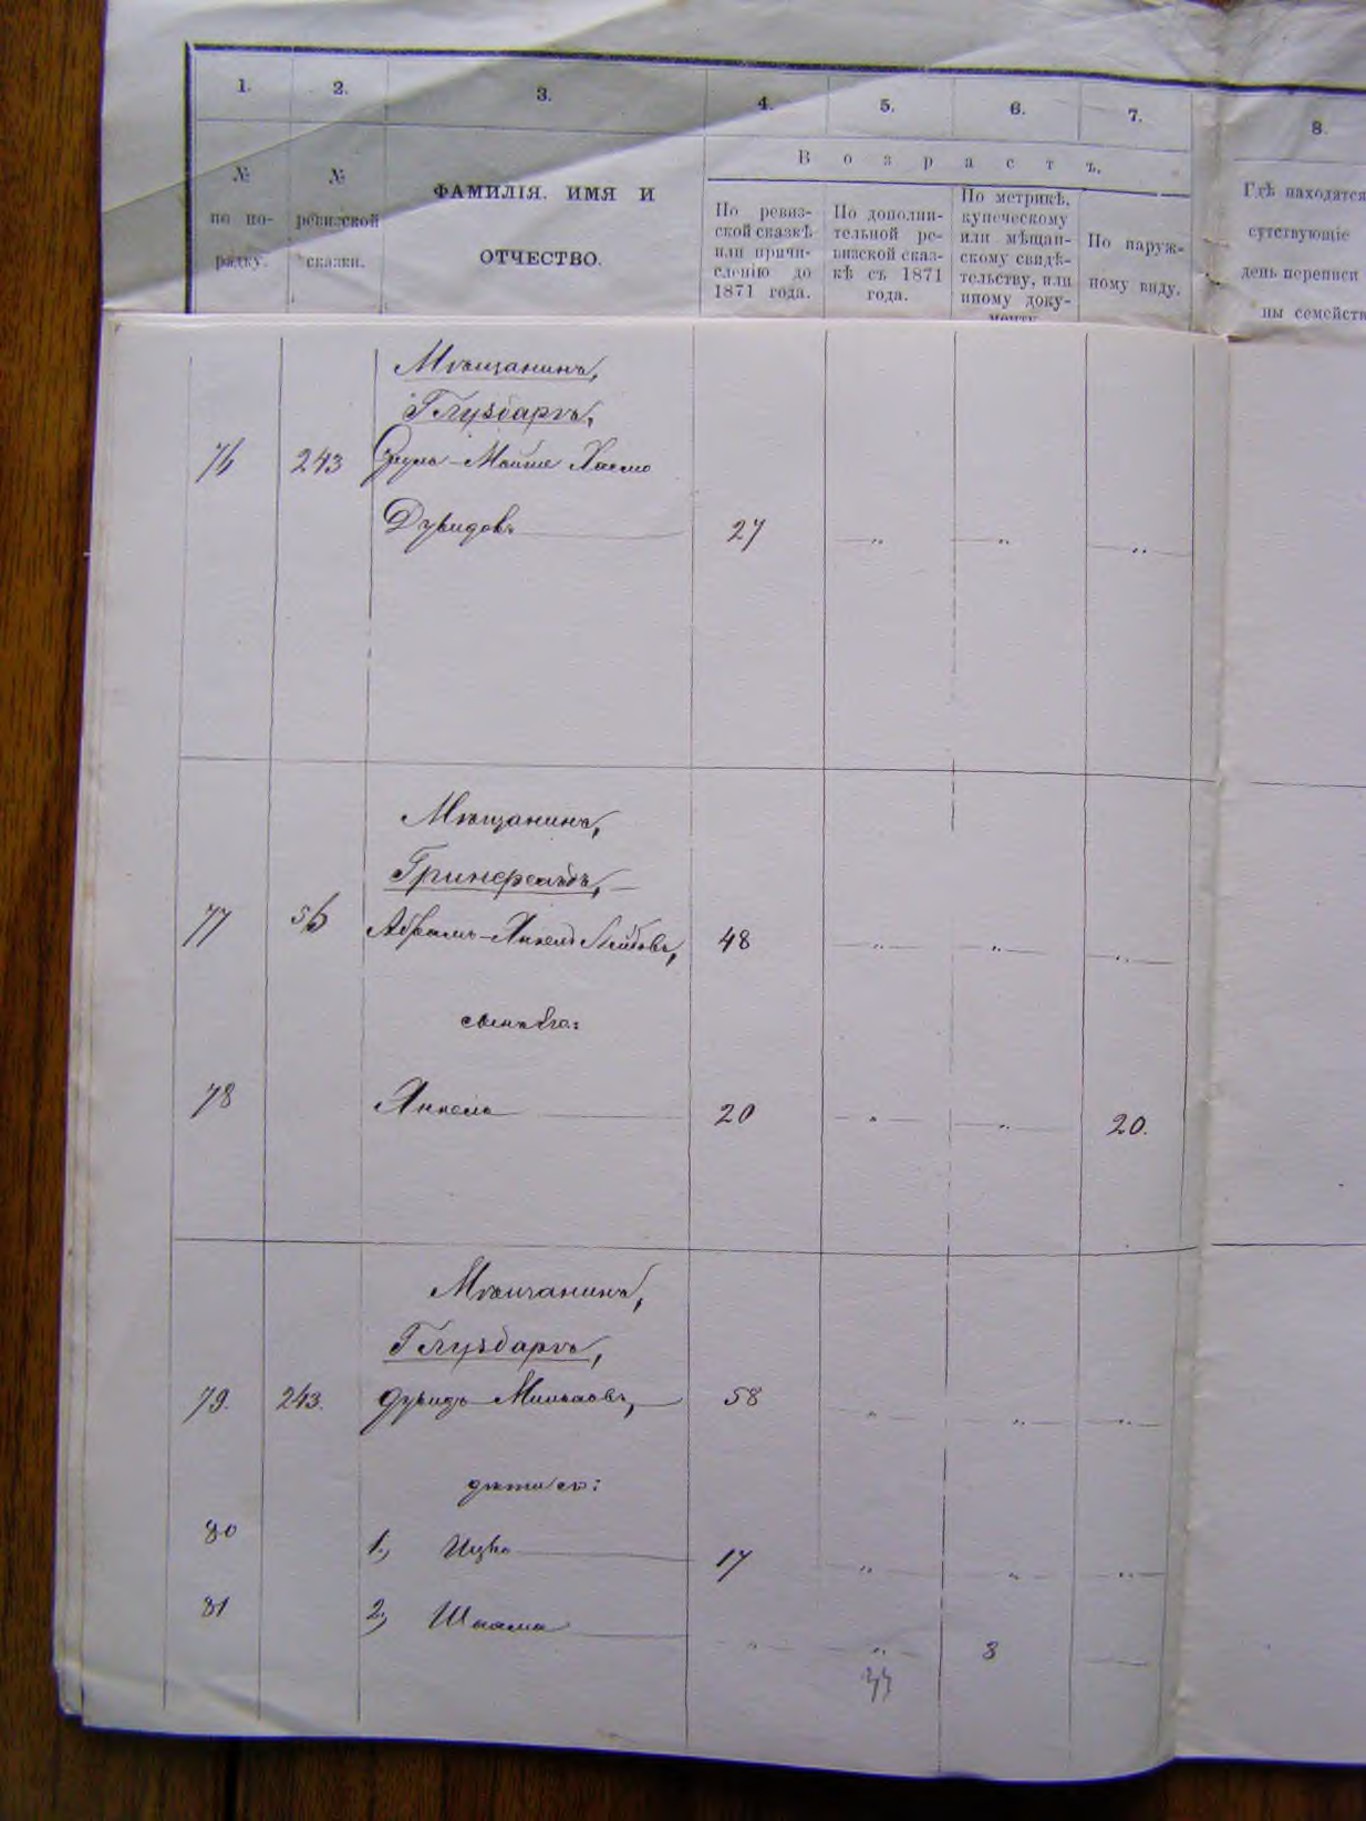 1. 2. 3. 4. 5. 6. 7. 8.
В о з р а с т ъ.
№ по по-рядку.
№ ревизской сказки.
ФАМИЛІЯ. ИМЯ И
ОТЧЕСТВО.
По ревиз-
ской сказкѣ
или причи-
сленію до
1871 года.
По дополни-
тельной ре-
визской сказ-
кѣ съ 1871
года.
По метрикѣ,
купеческому
или мѣщан-
скому свидѣ-
тельству, или
иному доку-
менту
По наруж-
ному виду.
Гдѣ находятся
сутствующіе
день переписи
ны семейств
Мѣщанинъ,
Глузбаргъ,
76 243 Мойше Хаимъ
Дувидовъ 27 " " "
Мѣщанинъ,
Гринфельдъ,
77 56 Абрамъ-Янкель Лейбовъ, 48 " " "
сынъ его:
78 Янкель 20 " " 20.
Мѣщанинъ,
Глузбаргъ,
79. 243. Дувидъ 58 " " "
дѣти его:
80 1., Ицко 17 " " "
81 2., " " 3